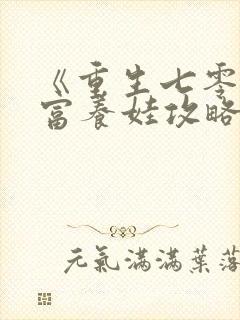 《重生七零
富养娃攻略
元氣滿滿葉落